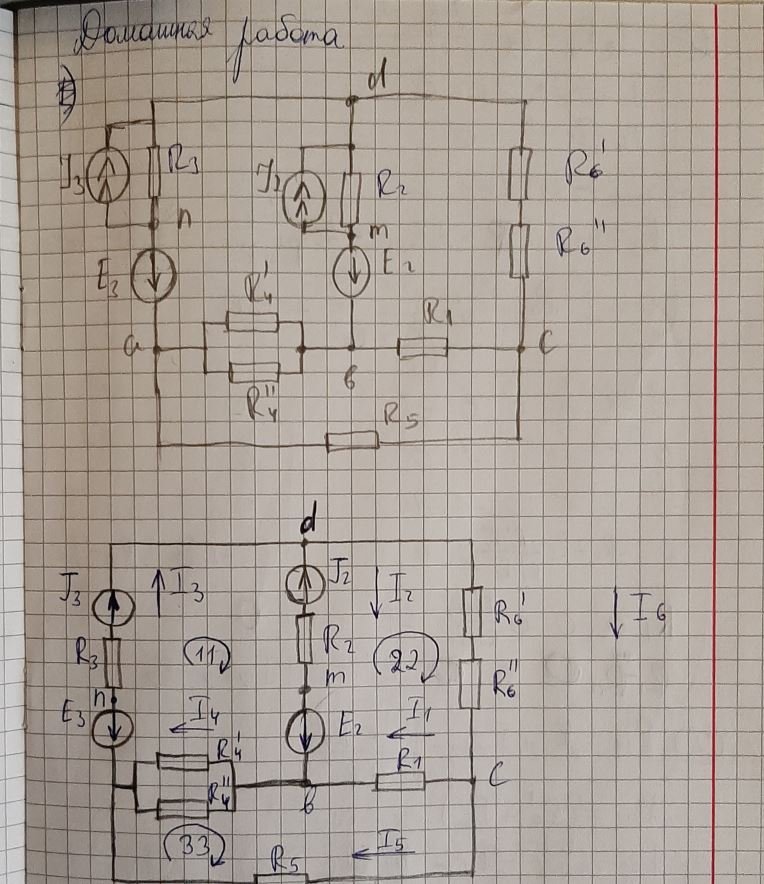 Домашная работа
1)
d
J3
R3
J2
R2
R6'
n
m
R6"
E3
E2
R4'
R1
a
в
c
R4"
R5
d
J3
I3
J2
I2
R6'
I6
R3
11
R2
22
m
R6"
n
E3
I4
E2
I1
R4'
R1
c
R4"
в
33
R5
I5